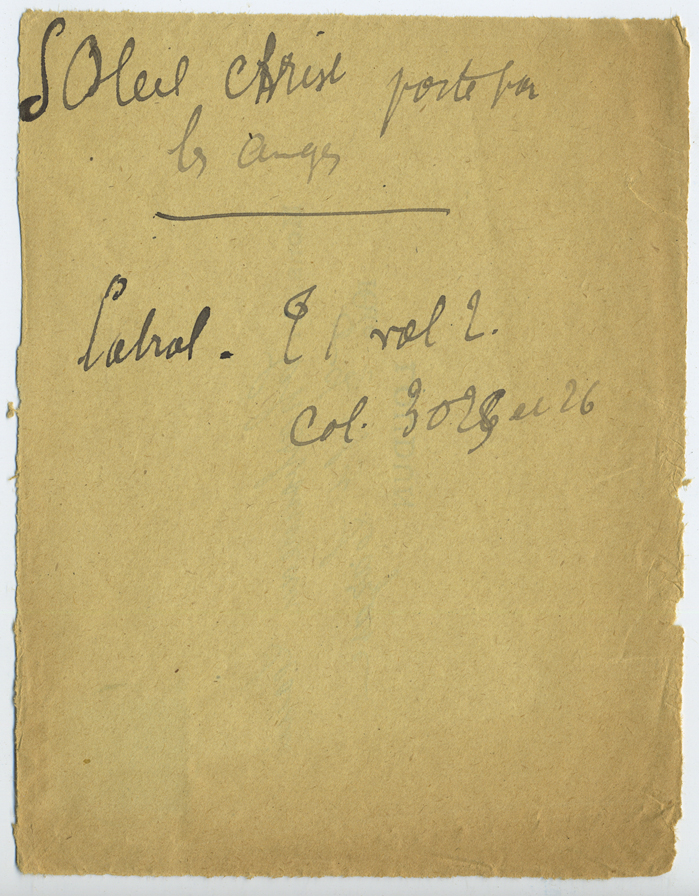 SOleil christ porté par
les anges
Cabrol. T 1 vol 2.
col. 3025 et 26